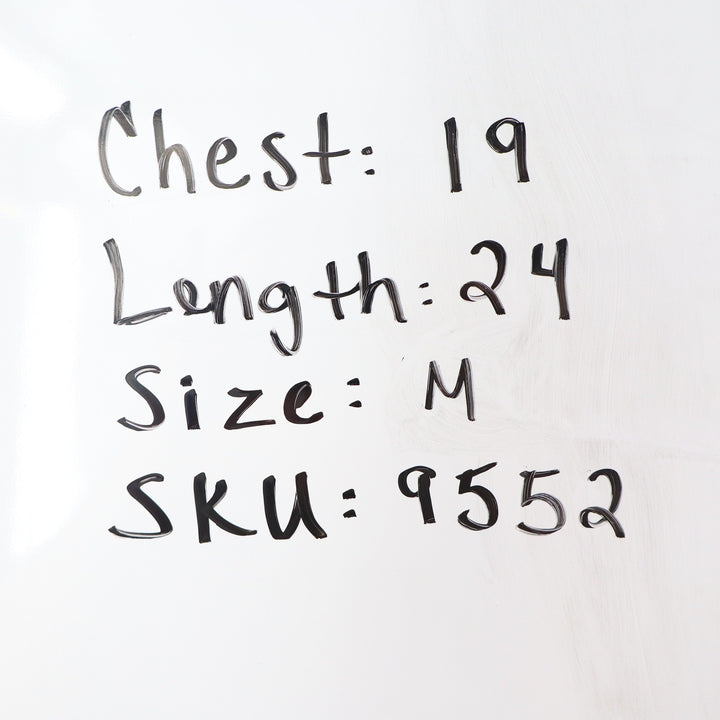 Chest: 19
Length: 24
Size: M
SKU: 9552